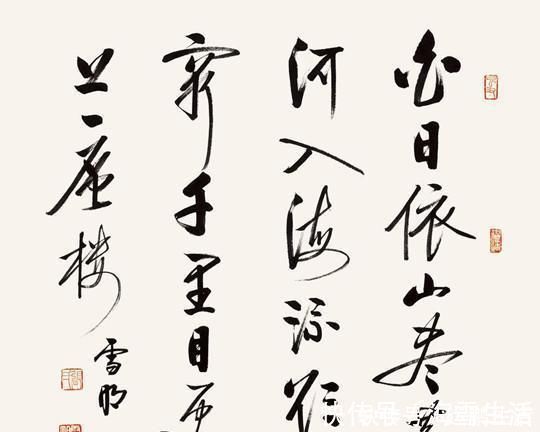 白日依山尽黄
河入海流欲
穷千里目更
上一层楼
雪明
生活